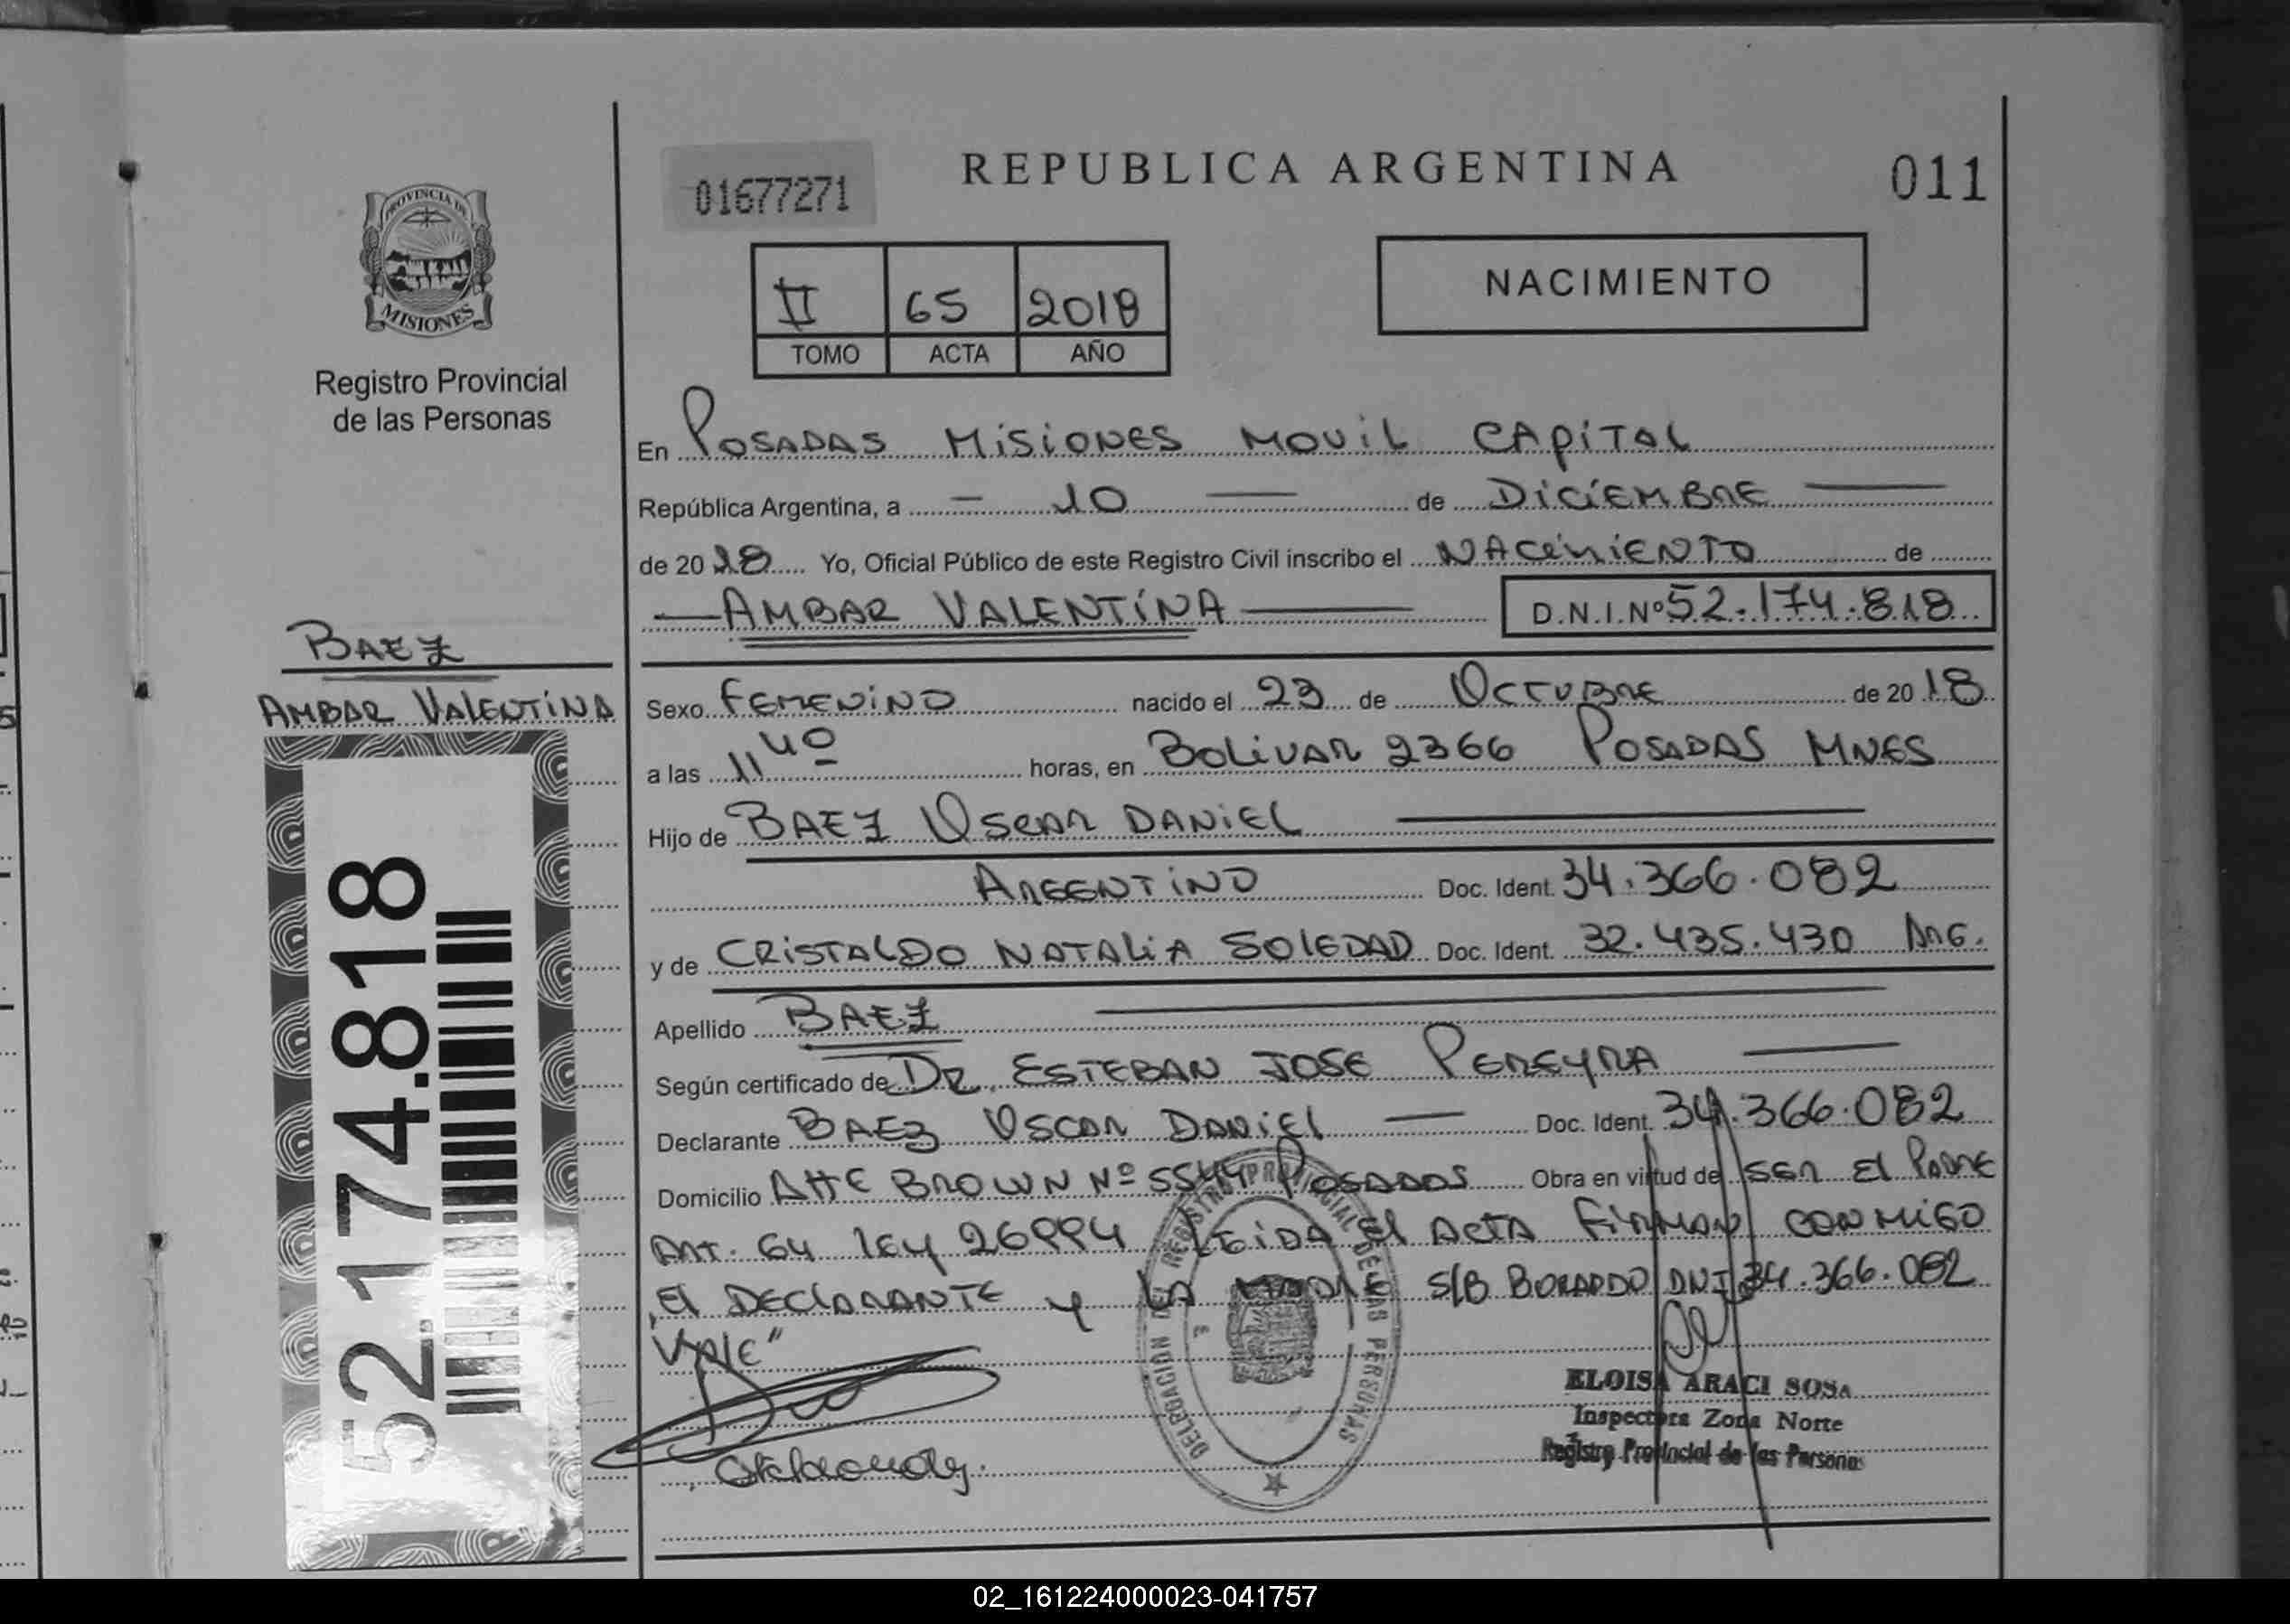 REPUBLICA ARGENTINA
01677271
011
PROVINCIA DE
MISIONES
Registro Provincial
de las Personas
II 65 2018
TOMO ACTA AÑO
NACIMIENTO
En POSADAS MISIONES MOVIL CAPITAL
República Argentina, a - 10 — de DICIEMBRE —
de 20 18 Yo, Oficial Público de este Registro Civil inscribo el NACIMIENTO de
— AMBAR VALENTINA — D.N.I.Nº 52.174.818
BAEZ
AMBAR VALENTINA
52.174.818
Sexo FEMENINO nacido el 23 de OCTUBRE de 20 18
a las 11 40 horas, en BOLIVAR 2366 POSADAS MNES
Hijo de BAEZ OSCAR DANIEL —
ARGENTINO Doc. Ident. 34.366.082
y de CRISTALDO NATALIA SOLEDAD Doc. Ident. 32.435.430 ARG.
Apellido BAEZ —
Según certificado de DR. ESTEBAN JOSE PEREYRA —
Declarante BAEZ OSCAR DANIEL — Doc. Ident. 34.366.082
Domicilio ALTE BROWN Nº 5544 POSADAS Obra en virtud de SER EL PADRE
ART. 64 LEY 26994 LEIDA EL ACTA FIRMAN CONMIGO
EL DECLARANTE Y LA MADRE S/B BORRADO DNI 34.366.082
VALE"
DELEGACION DEL REGISTRO PROVINCIAL DE LAS PERSONAS
ELOISA ARACI SOSA
Inspectora Zona Norte
Registro Provincial de las Personas
02_161224000023-041757